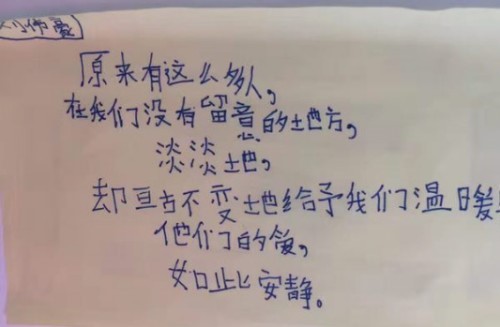 刘伟豪
原来有这么多人，
在我们没有留意的地方，
淡淡地，
却亘古不变地给予我们温暖
他们的爱，
如此安静。